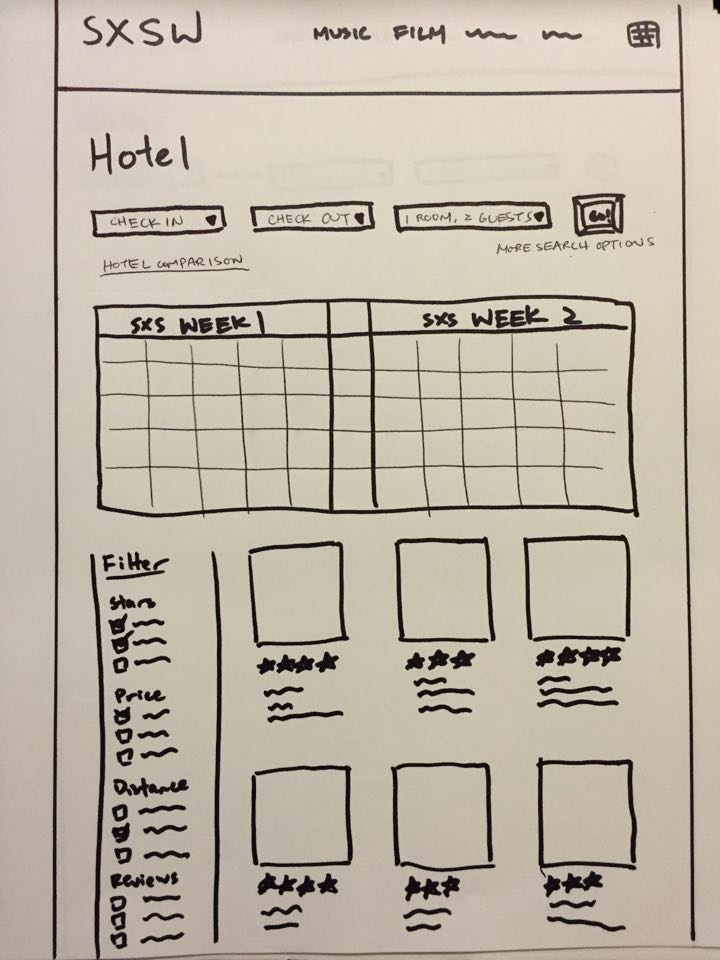 SXSW MUSIC FILM
Hotel
CHECK IN CHECK OUT 1 ROOM, 2 GUESTS GO!
MORE SEARCH OPTIONS
HOTEL COMPARISON
SXS WEEK 1 SXS WEEK 2
Filter
Stars
Price
Distance
Reviews